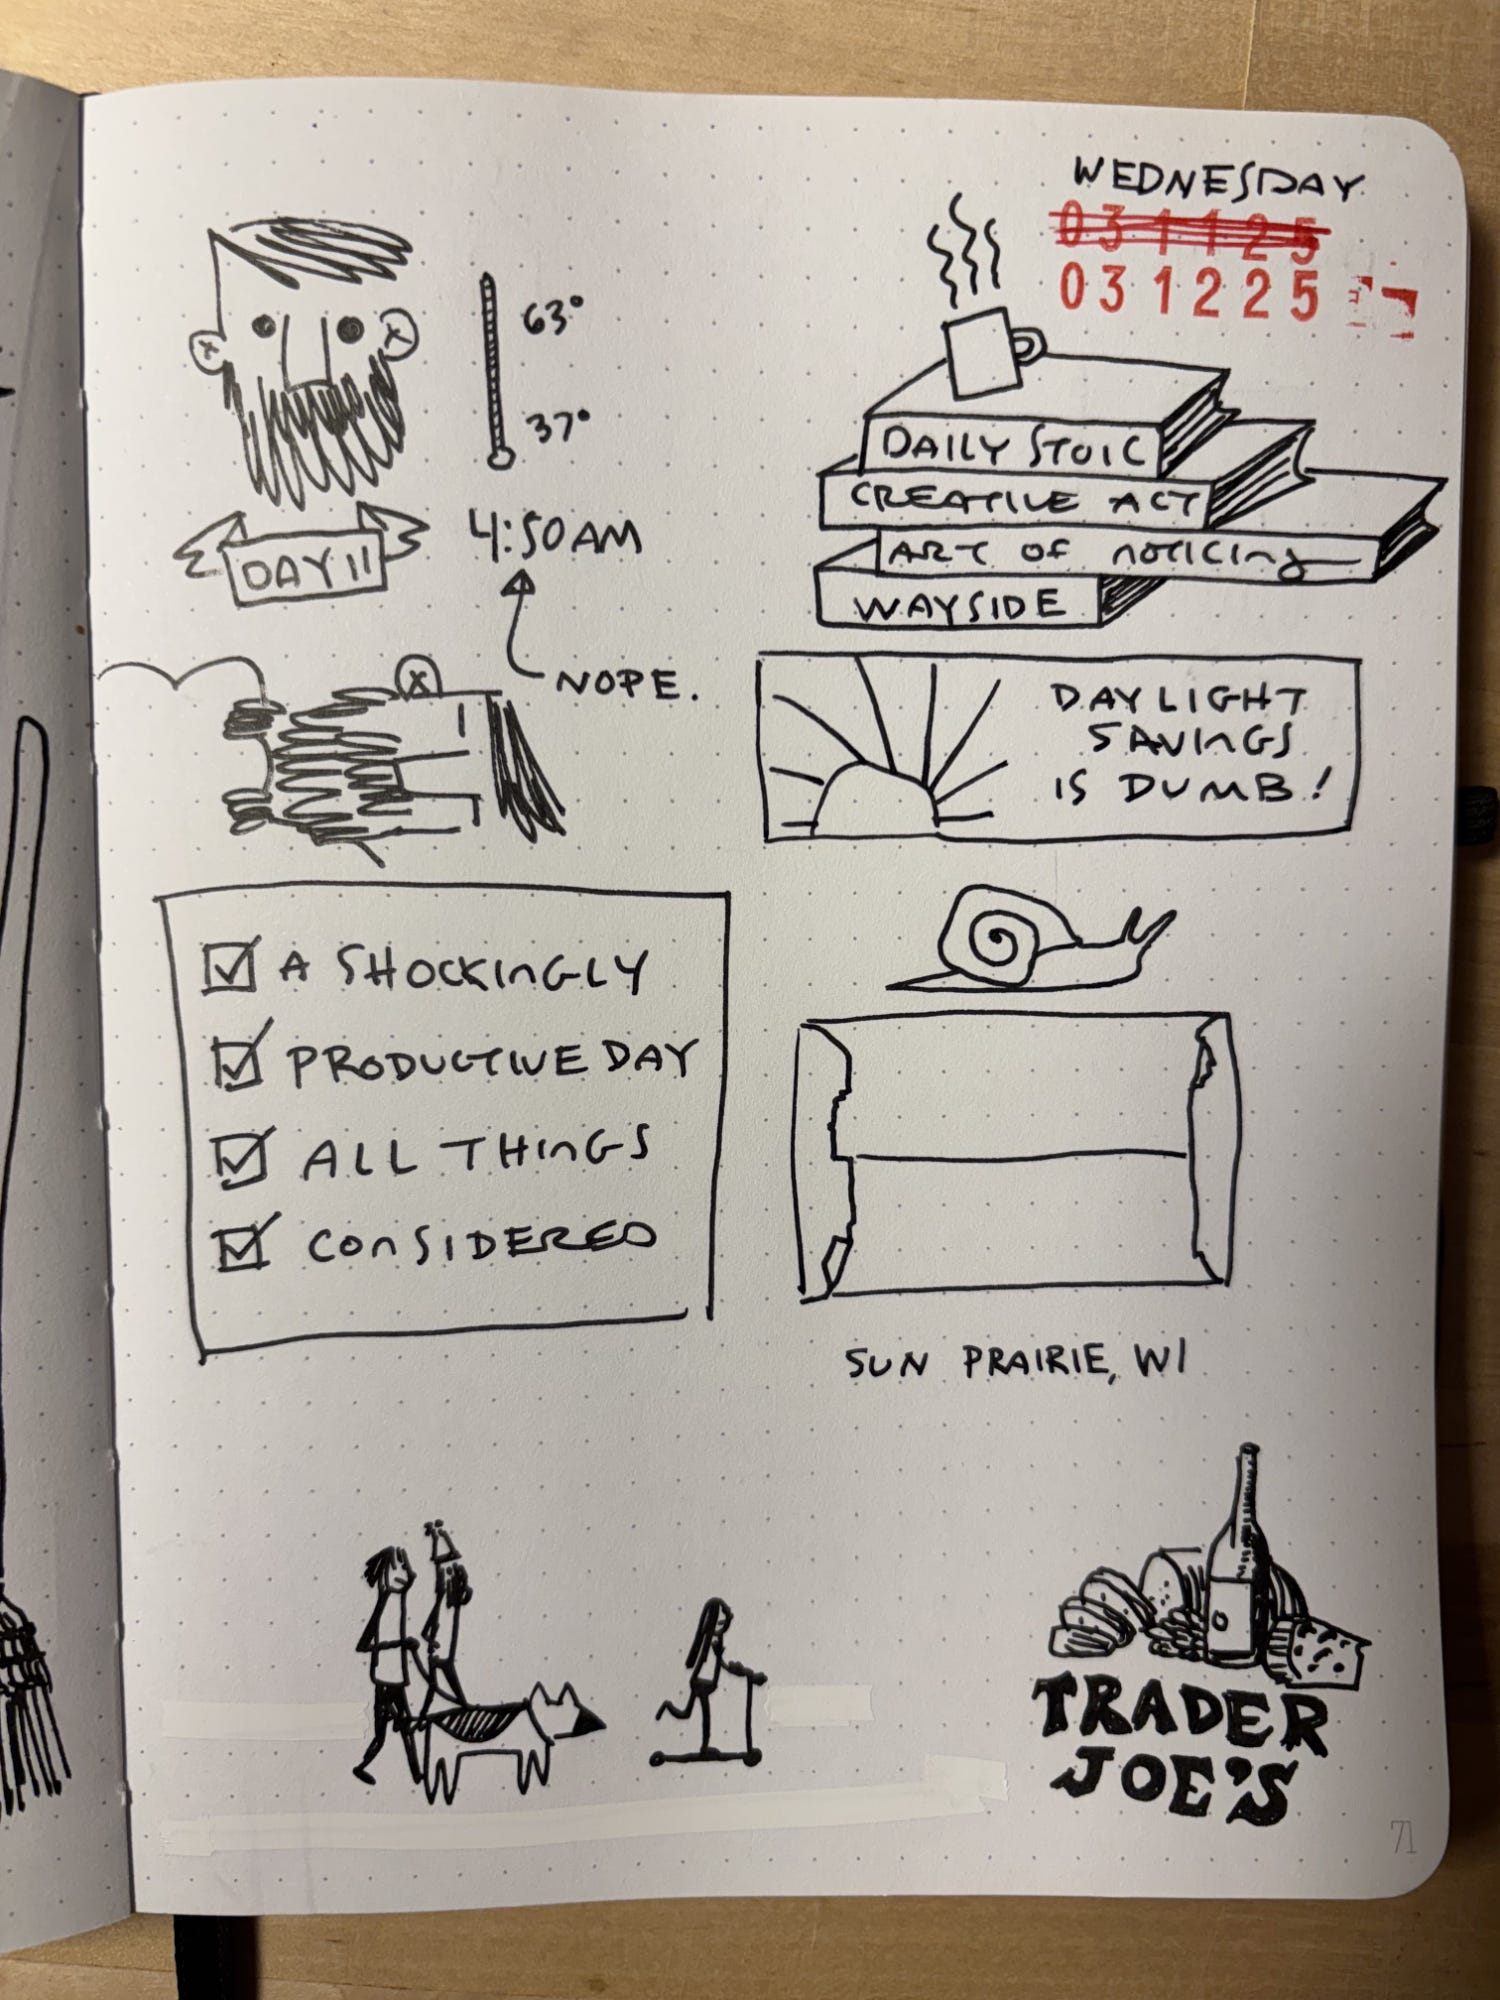 WEDNESDAY
031125
031225
63°
37°
DAY 11
4:50AM
NOPE.
DAILY STOIC
CREATIVE ACT
ART OF NOTICING
WAYSIDE
DAYLIGHT
SAVINGS
IS DUMB!
A SHOCKINGLY
PRODUCTIVE DAY
ALL THINGS
CONSIDERED
SUN PRAIRIE, WI
TRADER
JOE'S
71